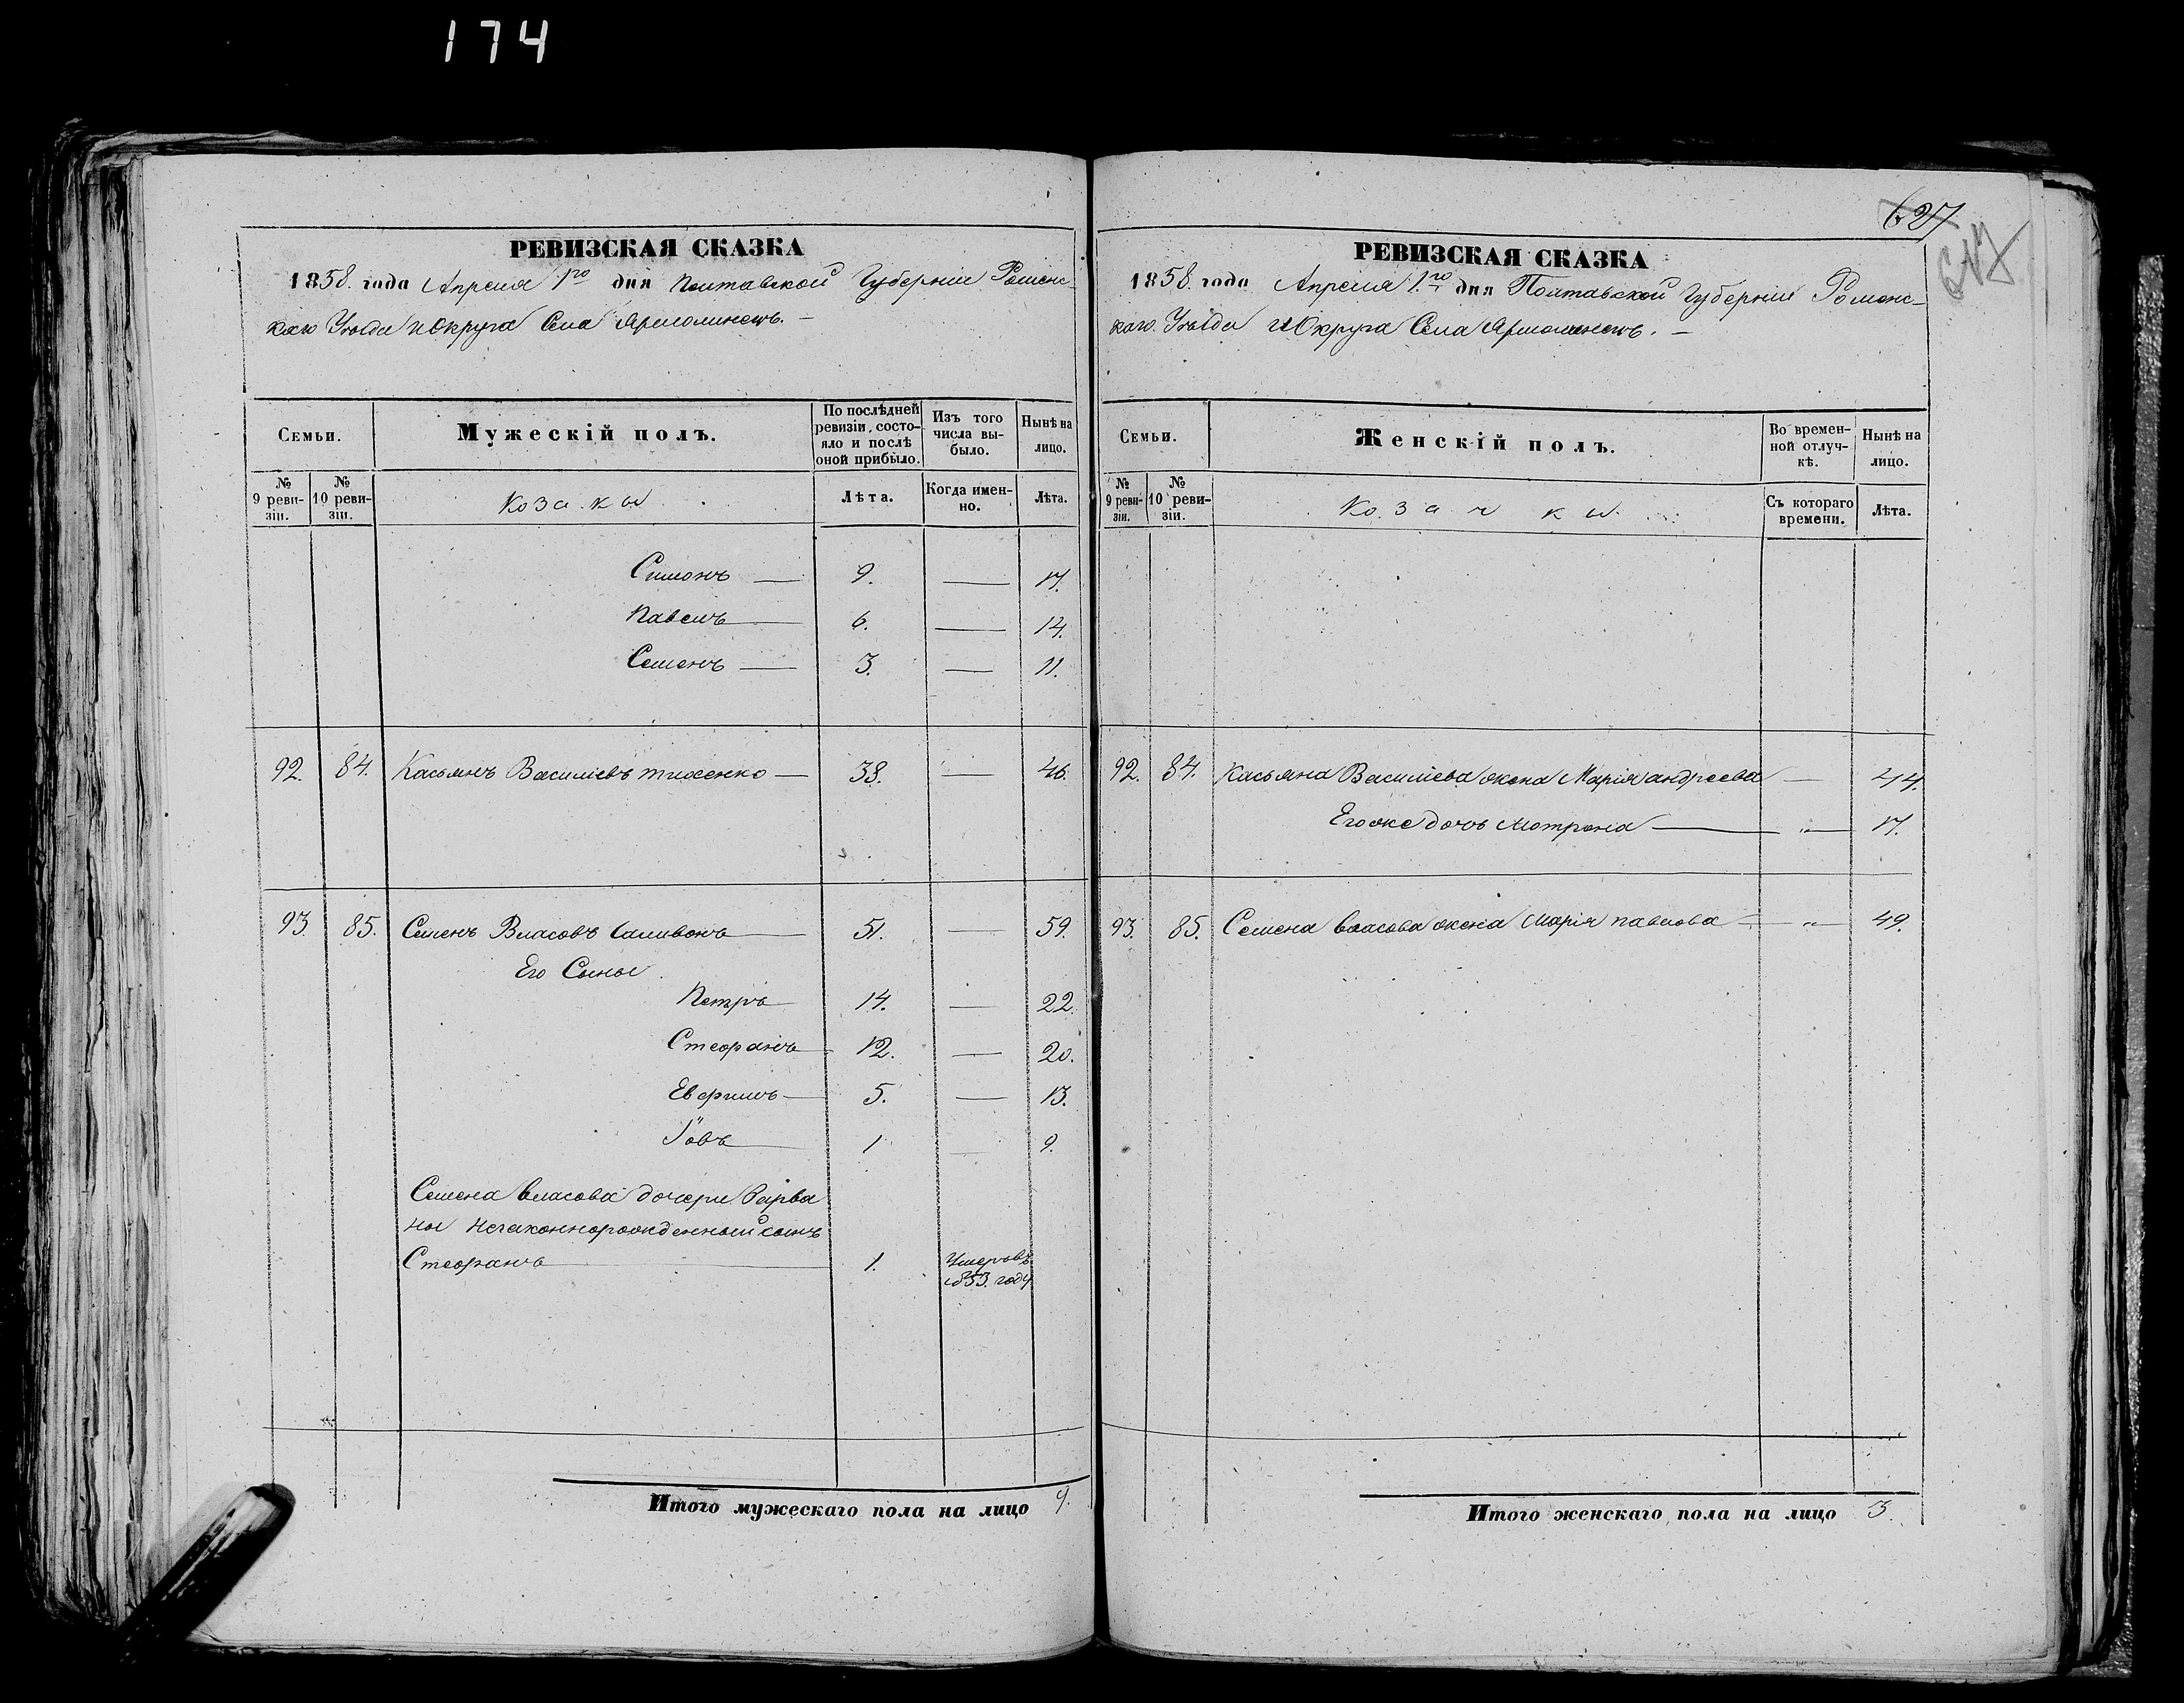 174
627
617
РЕВИЗСКАЯ СКАЗКА
1858. года Апреля 1го дня Полтавской Губерніи Роменс-
каго Уѣзда и Округа Села Ярмолинецъ. –
Семьи.
Мужескій полъ.
По послѣдней ревизіи состо-яло и послѣ оной прибыло.
Изъ того числа вы-было.
Нынѣ на лицо.
№ 9 реви-зіи.
№ 10 реви-зіи.
Козаки
Лѣта.
Когда имен-но.
Лѣта.
Симонъ — 9. — 17.
Павелъ — 6. — 14.
Семенъ — 3. — 11.
92. 84. Касьянъ Василіевъ Тихенко — 38. — 46.
93. 85. Семенъ Власовъ Саливонъ — 51. — 59.
Его Сыны
Петръ 14. — 22.
Стефанъ 12. — 20.
Евфимъ — 5. — 13.
Іовъ 1 9.
Семена Власова дочери Варва
ры незаконнорожденный сынъ
Стефанъ 1. Умеръ въ
1853. году
Итого мужескаго пола на лицо 9.
РЕВИЗСКАЯ СКАЗКА
1858. года Апреля 1.го дня Полтавской Губерніи Роменс-
каго Уѣзда и Округа Села Ярмолинецъ. –
Семьи.
Женскій полъ.
Во времен-ной отлуч-кѣ.
Нынѣ на лицо.
№ 9 реви-зіи.
№ 10 реви-зіи.
Козачки
Съ котораго времени.
Лѣта.
92. 84. Касьяна Василіева жена Марія Андреева — 44.
Его же дочь Мотрона — " — 17.
93. 85. Семена Власова жена Марія Павлова — " — 49.
Итого женскаго пола на лицо 3.